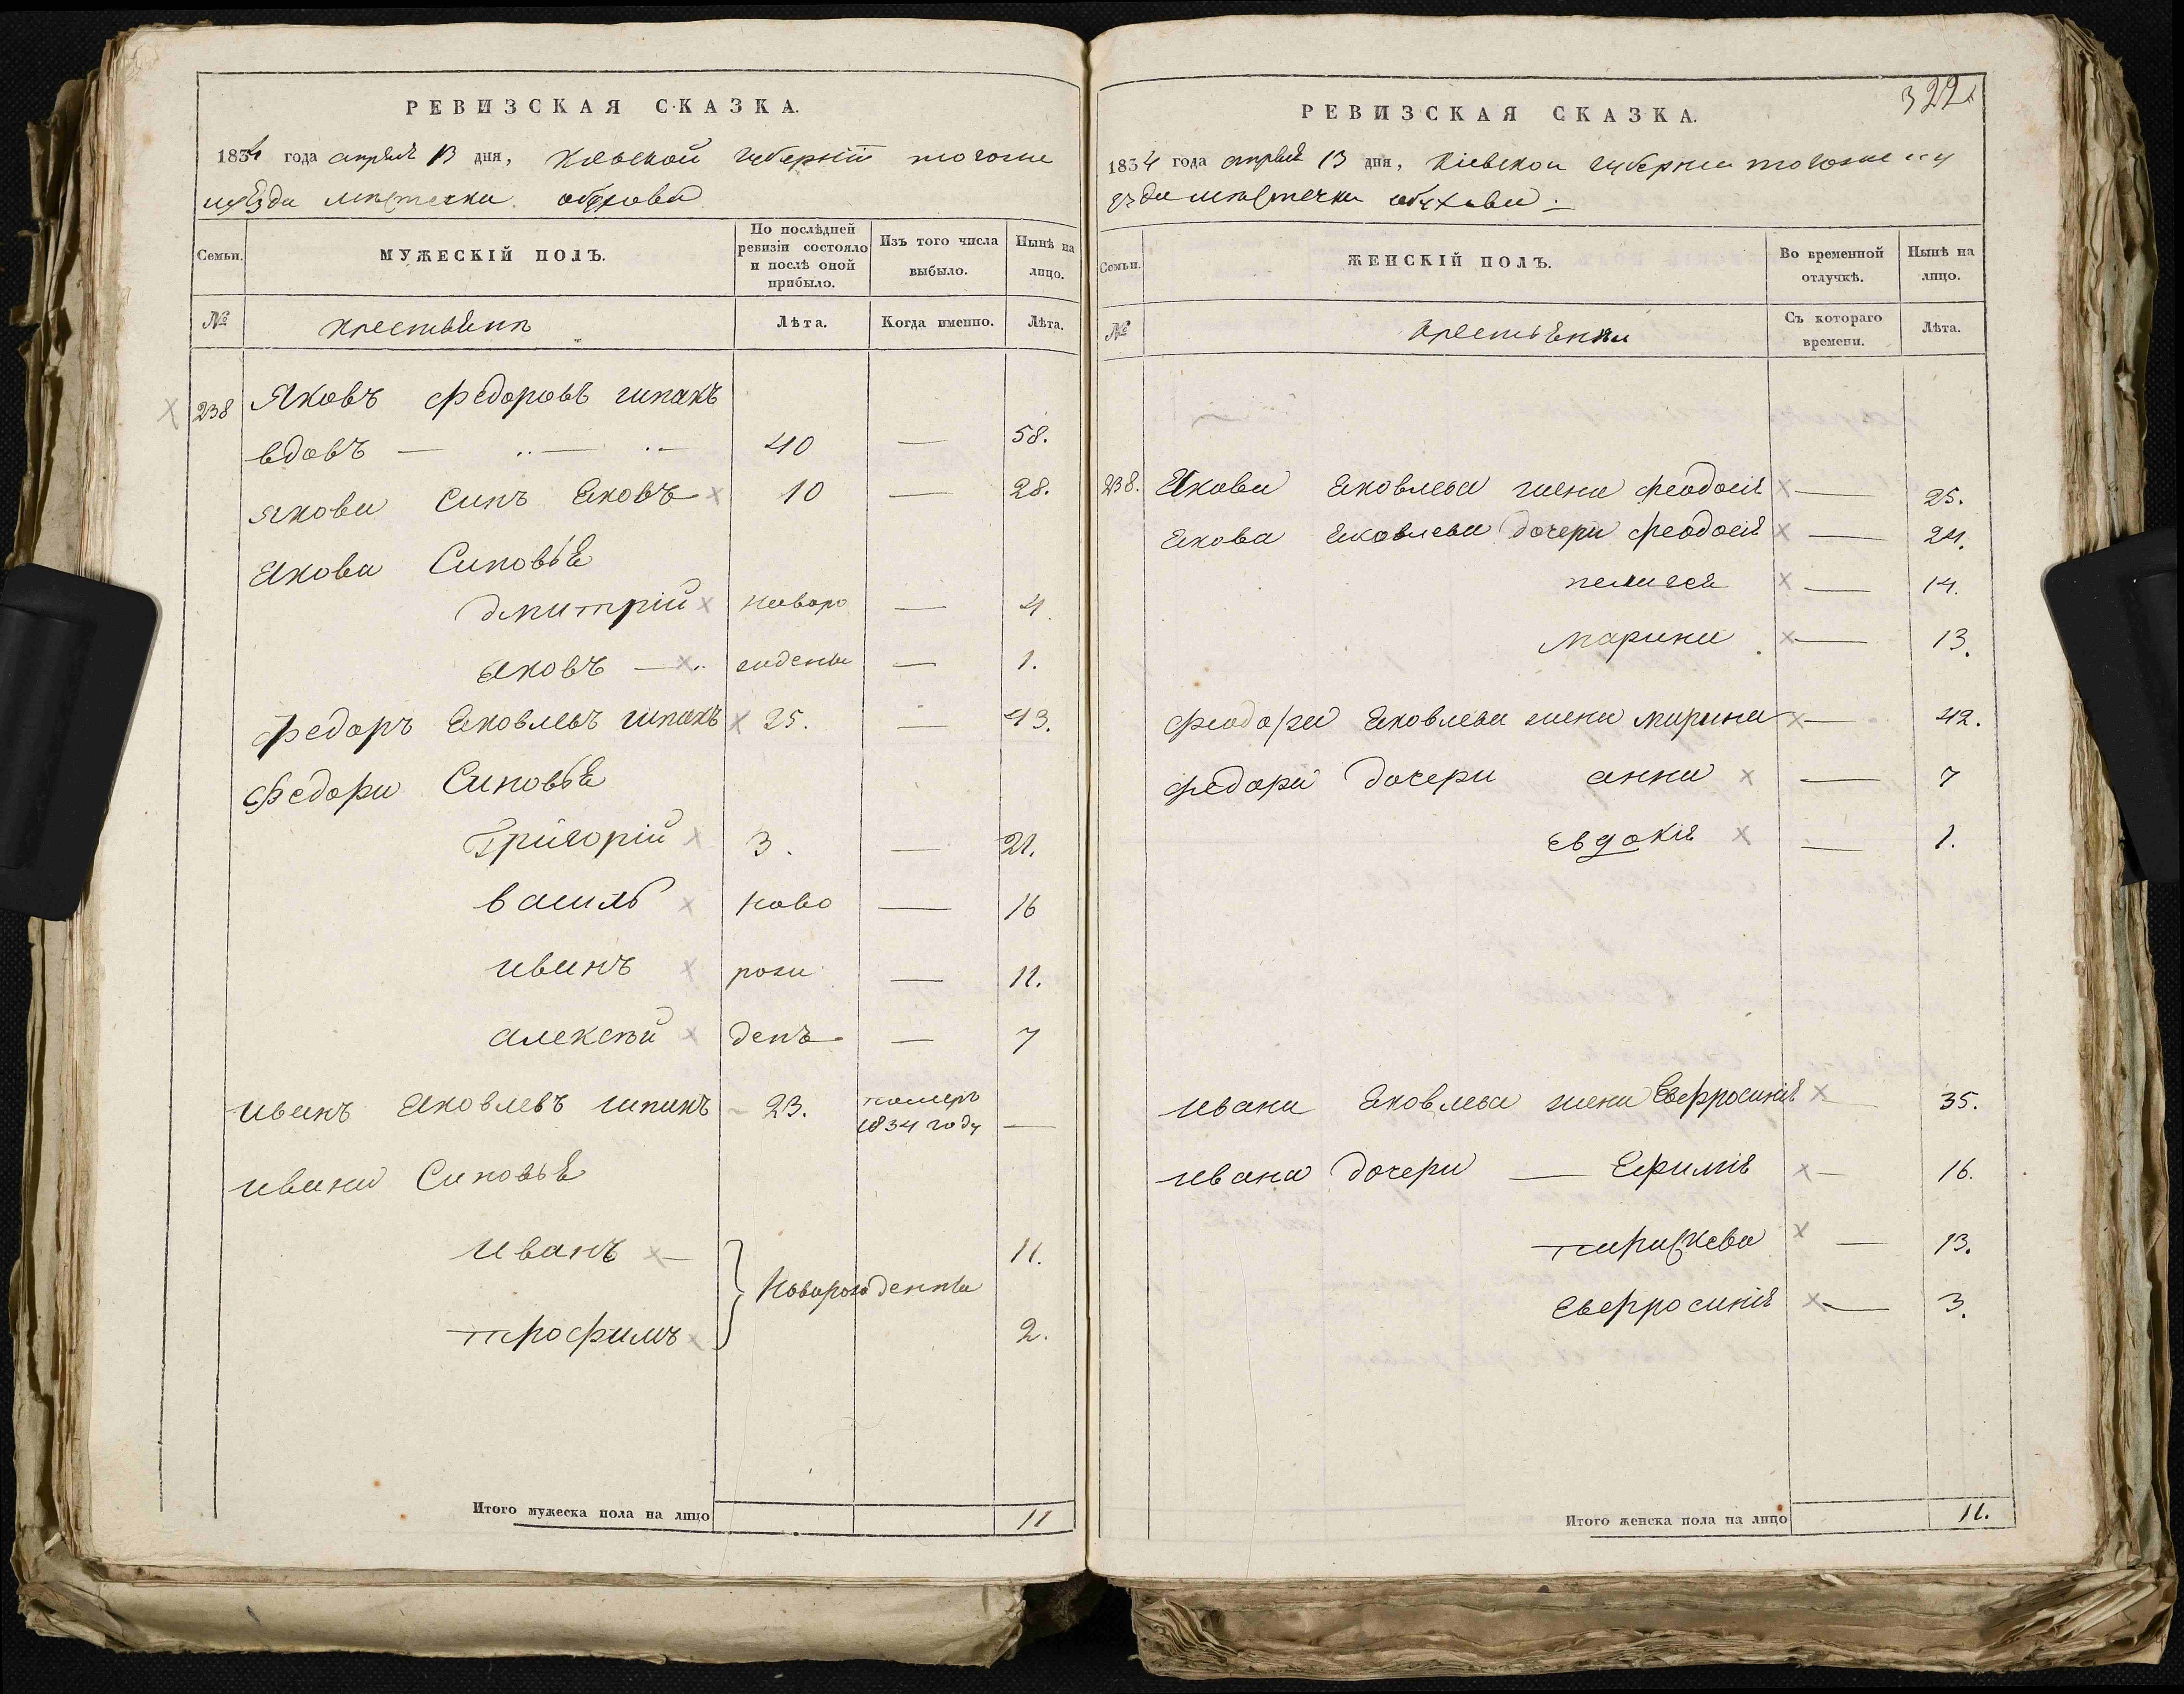 РЕВИЗСКАЯ СКАЗКА.
1834 года апреля 13 дня, Киевской губернiи тогоже
уезда местечка обухова
Семьи.
МУЖЕСКІЙ ПОЛЪ.
По послѣдней ревизіи состояло и послѣ оной прибыло.
Изъ того числа выбыло.
Нынѣ на лицо.
№
крестьяне
Лѣта.
Когда именно.
Лѣта.
238 Яковъ федоровъ шпакъ
вдовъ — 40 — 58.
якова Синъ Яковъ 10 — 28.
Якова Синовья
дмитрій новоро — 4
яковъ — ждены — 1.
федоръ Яковлевъ шпакъ 25. — 43.
федора Синовья
Григорій 3. — 21.
василь ново — 16
иванъ рож — 11.
алексѣй денъ — 7
иванъ Яковлевъ шпакъ 23. померъ 1834 году —
ивана Синовья
иванъ — 11.
Новорожденны
трофимъ 2.
Итого мужеска пола на лицо 11
322
РЕВИЗСКАЯ СКАЗКА.
1834 года апреля 13 дня, Кіевской губернии тогоже у
езда местечка обухова
Семьи.
ЖЕНСКІЙ ПОЛЪ.
Во временной отлучкѣ.
Нынѣ на лицо.
№
крестьянки
Съ котораго времени.
Лѣта.
238. Якова Яковлева жена феодосия — 25.
Якова Яковлева дочери феодосия — 24.
пелагея — 14.
марина — 13.
феодора Яковлева жена марина — 42.
федора дочери анна — 7
евдокія — 1.
ивана Яковлева жена Евфросинія — 35.
ивана дочери — Ефимія — 16.
параскева — 13.
Евфросинія — 3.
Итого женска пола на лицо 11.